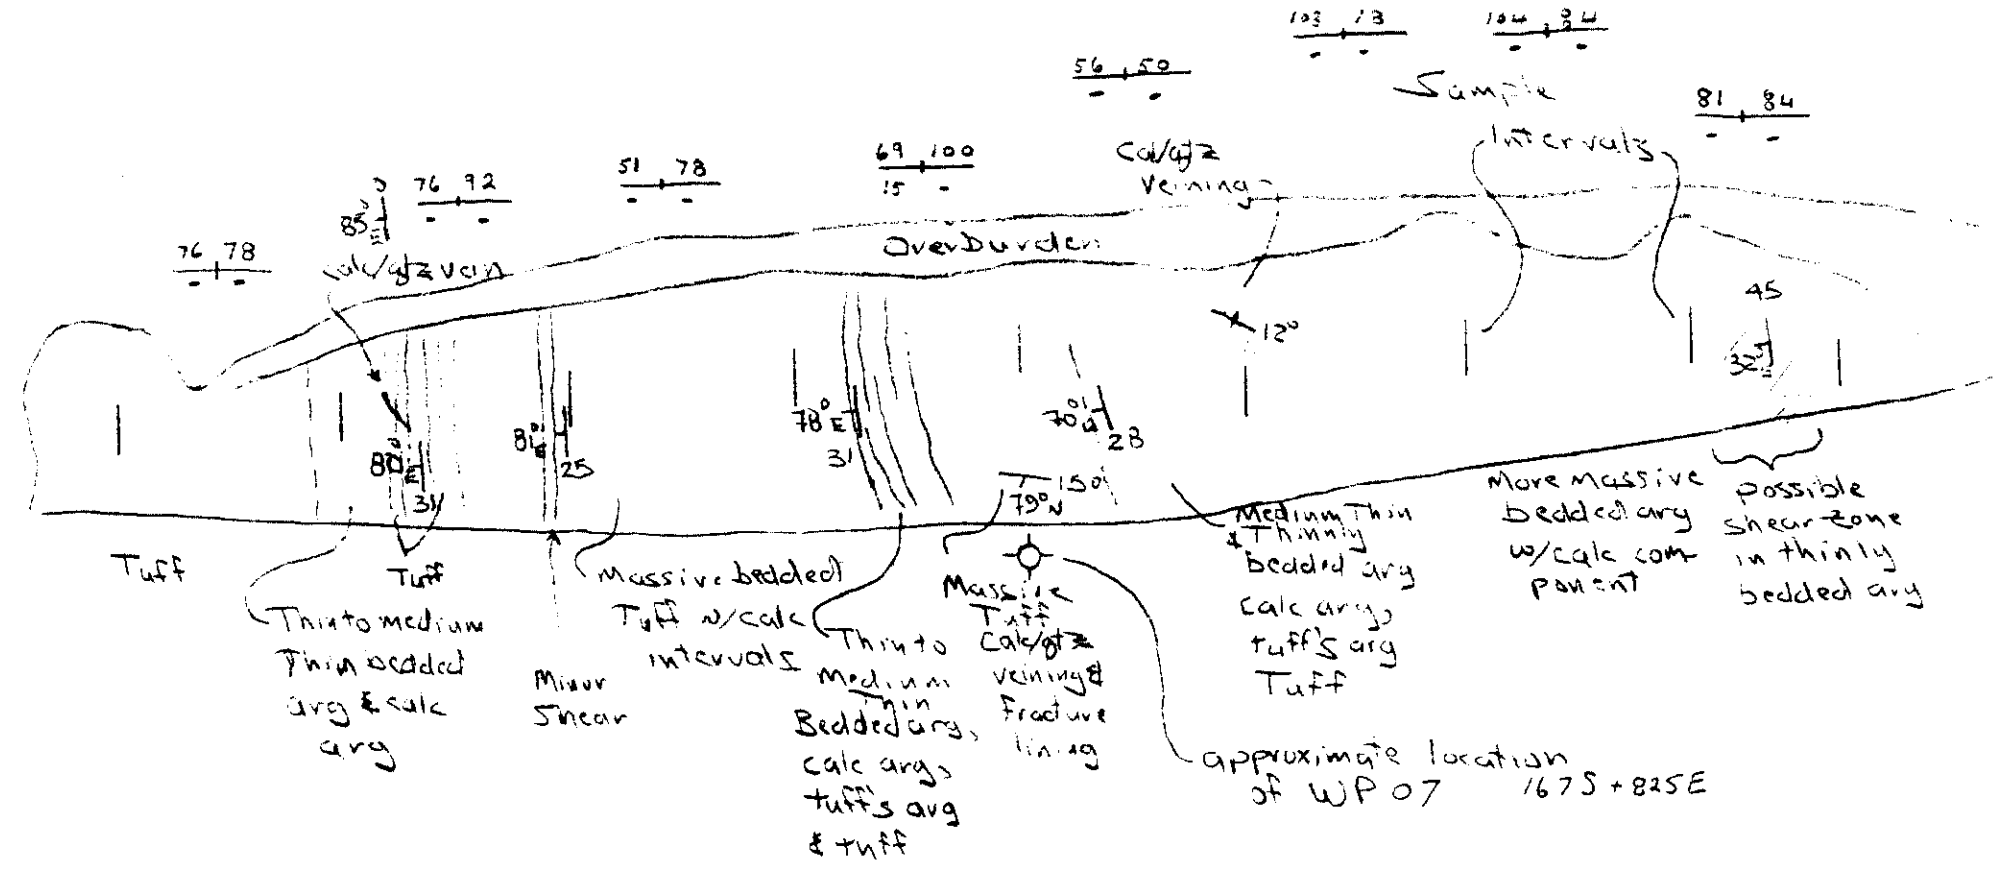 103 13
104 84
56 50
Sample
Intervals
81 84
69 100
15 -
Cal/qtz
Veining
51 78
76 92
85° E
76 78
calc/qtz vein
Overburden
45
12°
78° E
31
70°
28
81° E
25
31
79° N
150
Tuff
Tuff
Thin to medium
Thin bedded
arg & calc
arg
Minor
Shear
Massive bedded
Tuff w/calc
intervals
Thin to
Medium
Thin
Bedded arg,
calc arg,
tuff's arg
& tuff
Massive
Tuff
Calc/qtz
veining &
fracture
lining
approximate location
of WP 07 167S + 825E
Medium Thin
& Thinnly
bedded arg
calc arg,
tuff's arg
Tuff
More massive
bedded arg
w/calc com-
ponent
possible
shear zone
in thinly
bedded arg